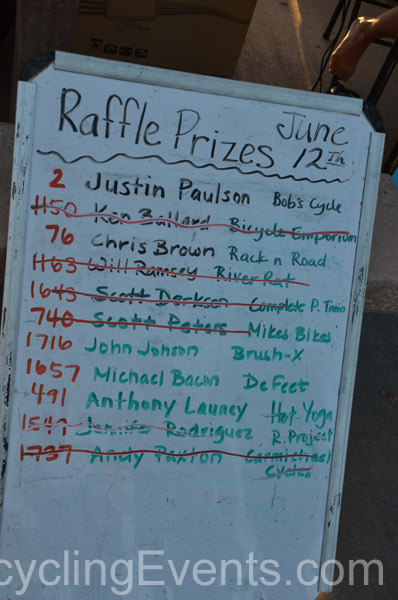 Raffle Prizes June 12Th
2 Justin Paulson Bob's Cycle
1150 Ken Ballard Bicycle Emporium
76 Chris Brown Rack n Road
1163 Will Ramsey River Rat
1645 Scott Derksen Complete P. Train
740 Scott Peters Mikes Bikes
1716 John Johson Brush-X
1657 Michael Bacon DeFeet
491 Anthony Launey Hot Yoga
1547 Jennifer Rodriguez R. Project
1737 Andy Paxton Carmichael
Cycles
cyclingEvents.com